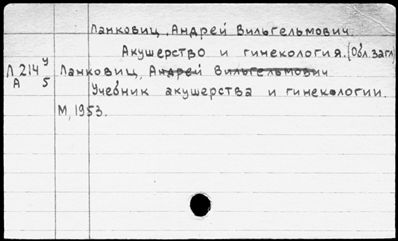 Ланковиц, Андрей Вильгельмович.
Акушерство и гинекология. (Обл. загл)
Л 214 У Ланковиц, Андрей Вильгельмович
А 5 Учебник акушерства и гинекологии.
М, 1953.